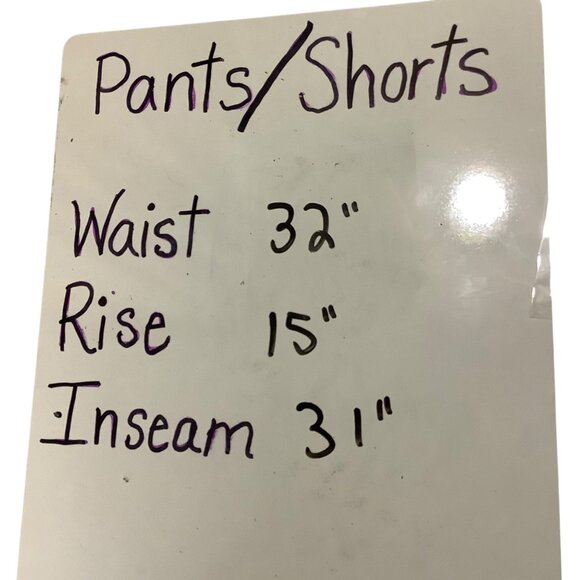 Pants/Shorts
Waist 32"
Rise 15"
Inseam 31"